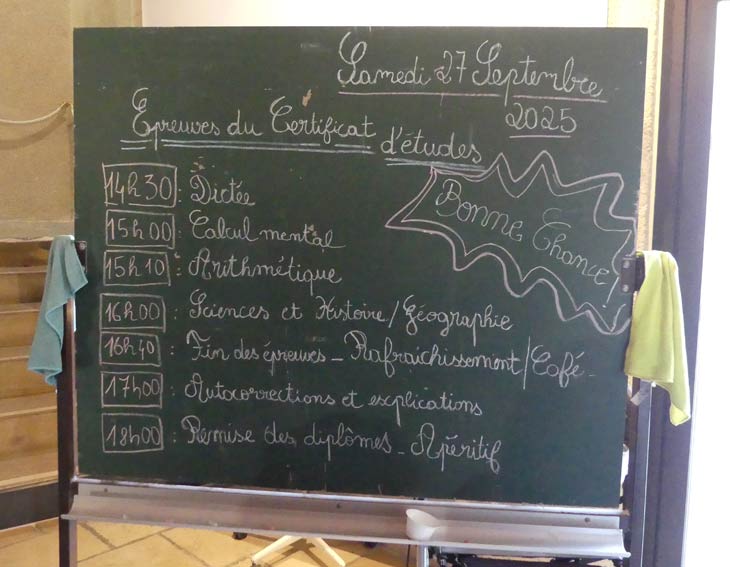 Samedi 27 Septembre
2025
Epreuves du Certificat d'études
Bonne Chance!
14h30 : Dictée
15h00 : Calcul mental
15h10 : Arithmétique
16h00 : Sciences et Histoire/Géographie
16h40 : Fin des épreuves - Rafraichissement/Café -
17h00 : Autocorrections et explications
18h00 : Remise des diplômes - Apéritif